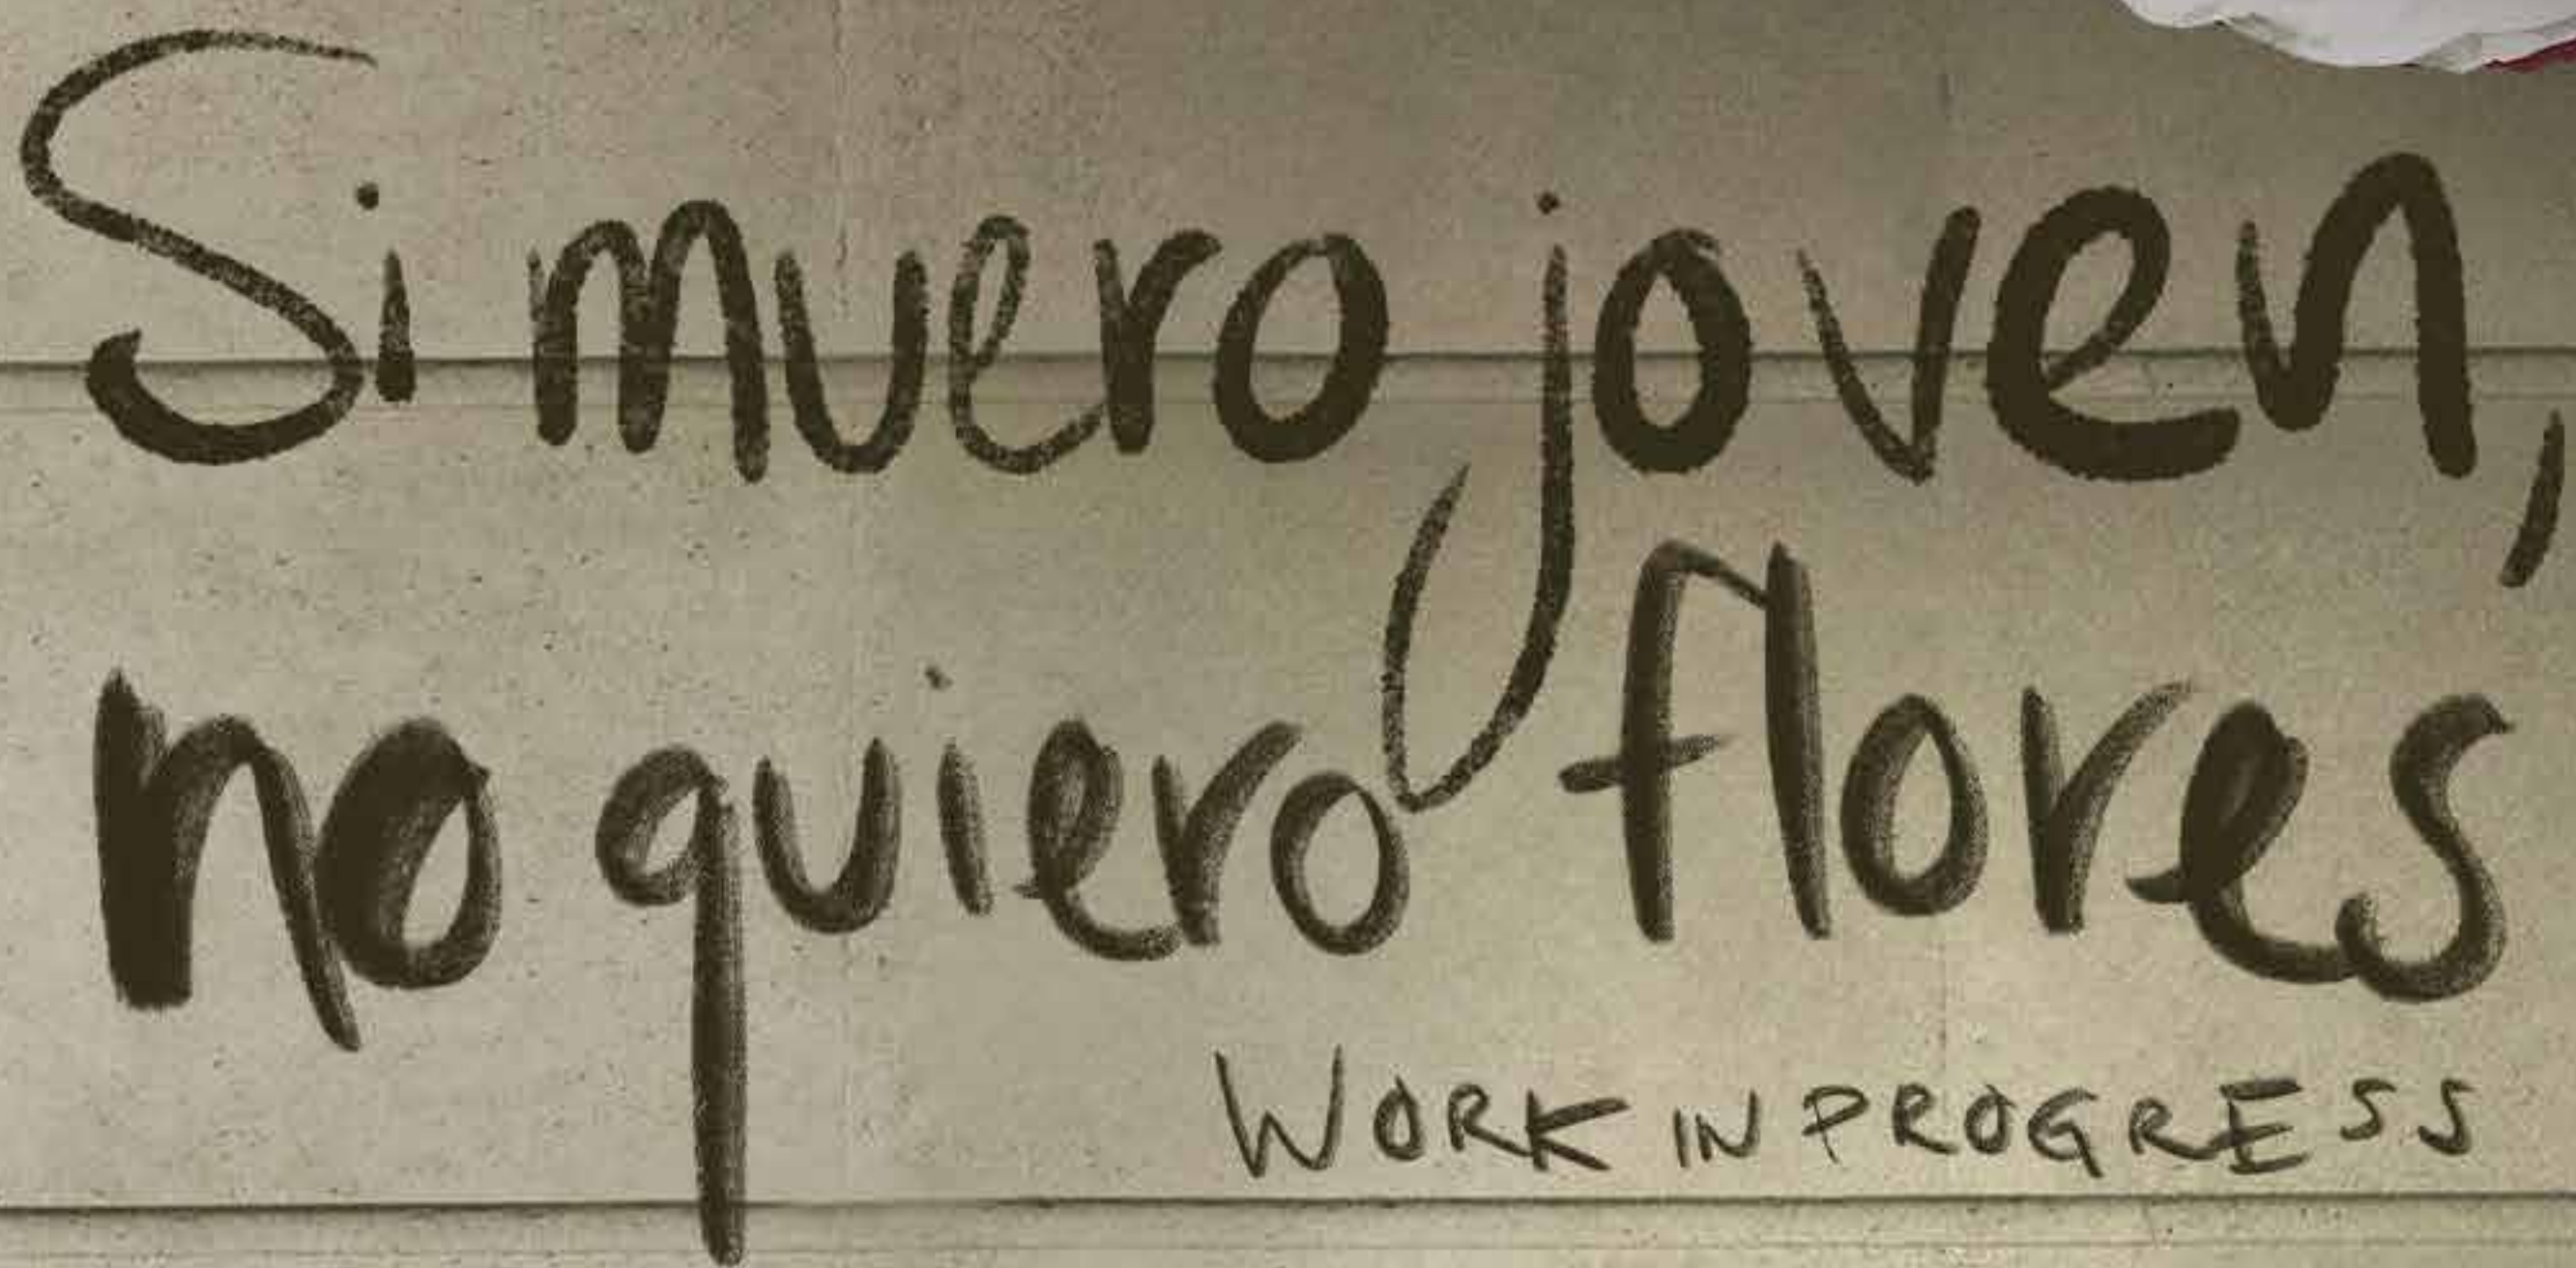 Si muero joven,
no quiero flores
WORK IN PROGRESS